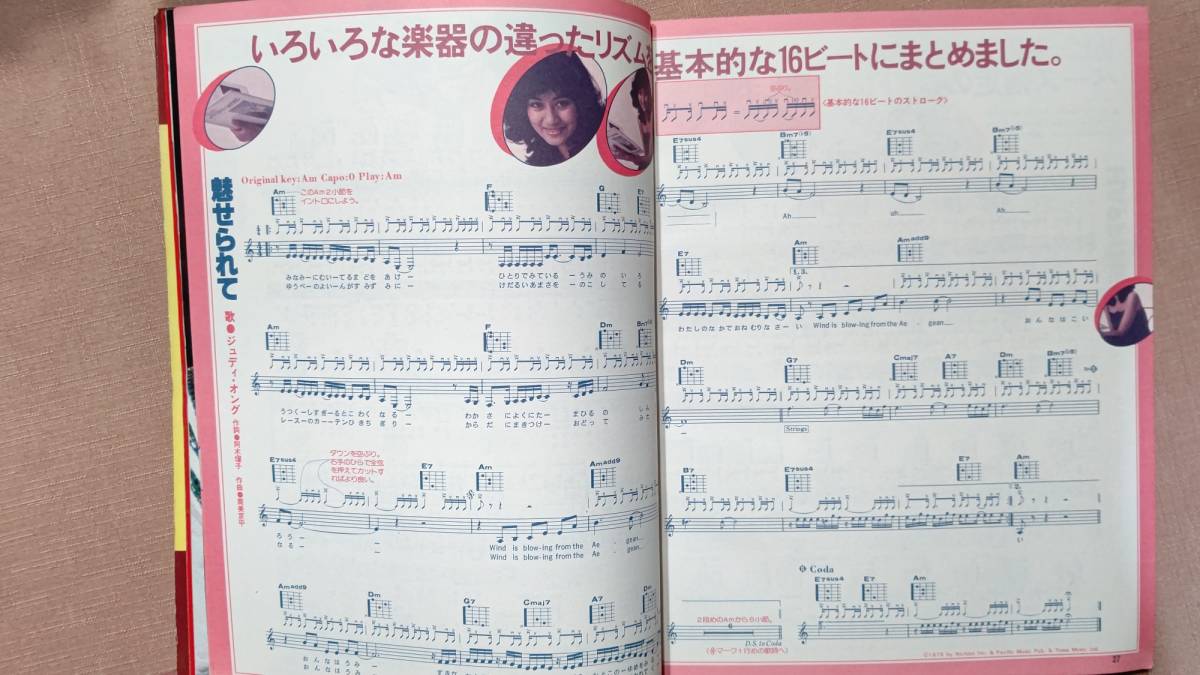 いろいろな楽器の違ったリズムを
基本的な16ビートにまとめました。
〈基本的な16ビートのストローク〉
魅せられて
歌●ジュディ・オング
作詞●阿木燿子 作曲●筒美京平
Original key:Am Capo:0 Play:Am
Am
このAm2小節を
イントロにしよう。
F
G
E7
みなみーにむいーてるま どを あけー
ひとりでみている ーうみの いろ
ゆうべーのよいーんがす みず みにー
けだるいあまさを ーのこ してる
Am
F
Dm
うつくーしすぎーるとこ わく なるー
わかさ によくにたー まひるの しん
レースーのカーーテンひ きちぎりー
からだ にまきつけー おどって みた
E7sus4
ダウンを空ぶり。
右手のひらで全弦
を押えてカットす
ればより良い。
E7
Am
Amadd9
ろうー
なるー
Wind is blow-ing from the Ae - gean
Wind is blow-ing from the Ae - gean
Amadd9
Dm
G7
Cmaj7
A7
Dm
おんなはうみー
おんなはうみー
E7sus4
Bm7(♭5)
E7sus4
Bm7(♭5)
Ah
uh
Ah
E7
Am
Amadd9
1.3.
わたしのなかでおねむりなさーい Wind is blow-ing from the Ae - gean
おんなはこい
Dm
G7
Cmaj7
A7
Dm
Bm7(♭5)
Strings
B7
E7sus4
E7
Am
2.
い
Coda
E7sus4
E7
Am
2段めのAmから6小節。
6
D.S. to Coda
27